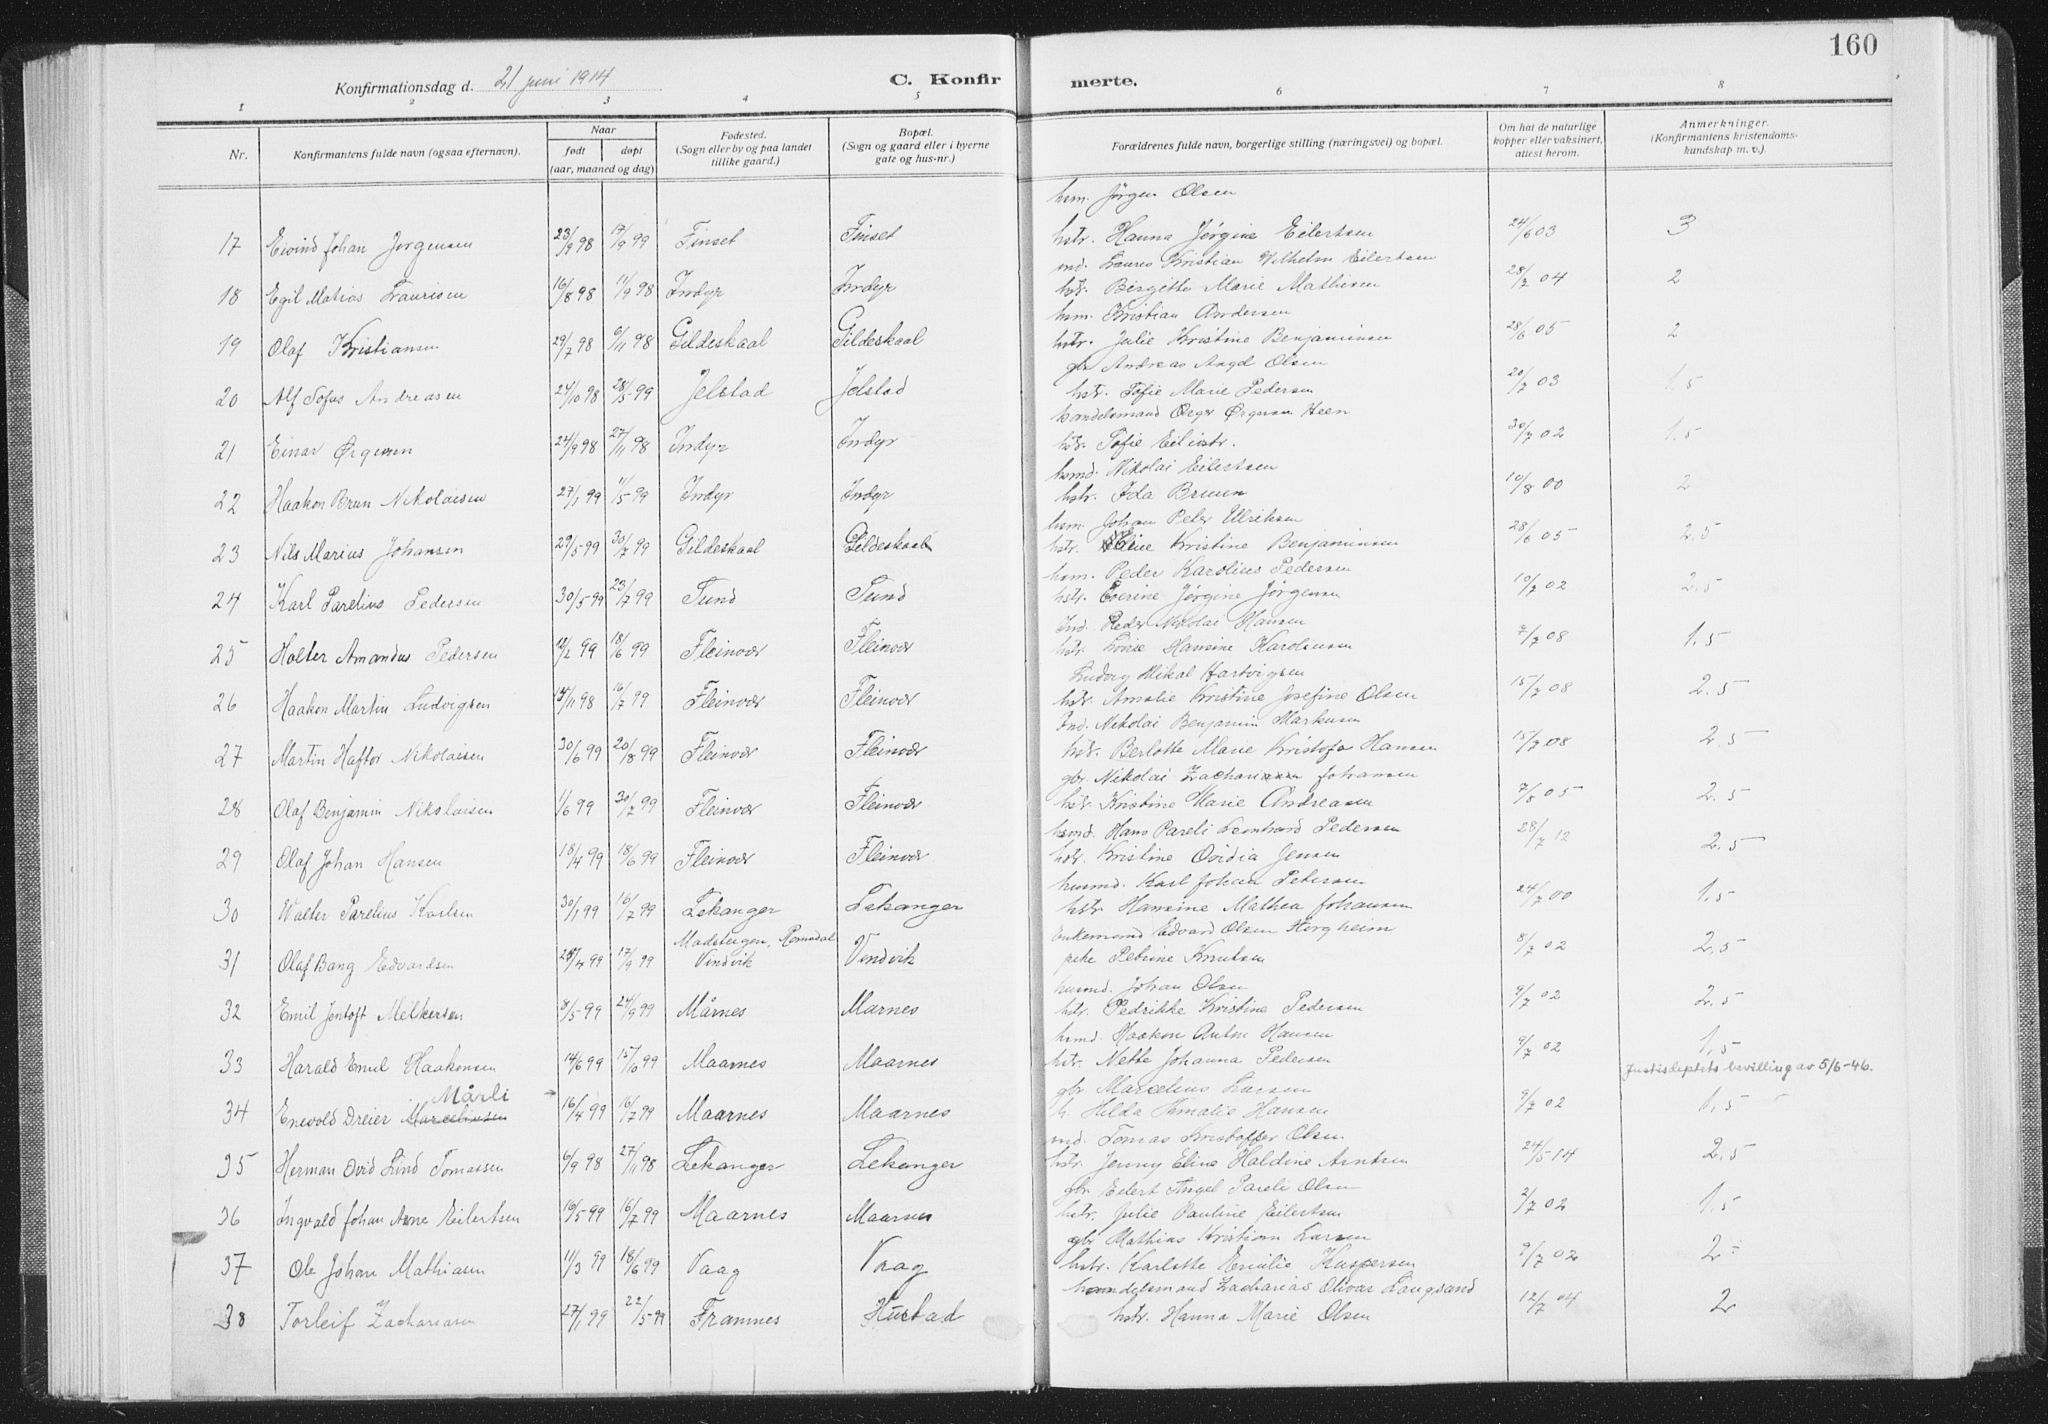 160
Konfirmationsdag d. 21 juni 1914 C. Konfir merte.
1 2 3 4 5 6 7 8
Nr. Konfirmantens fulde navn (ogsaa efternavn). Naar født døpt (aar, maaned og dag) Fødested. (Sogn eller by og paa landet tillike gaard.) Bopæl. (Sogn og gaard eller i byerne gate og hus-nr.) Forældrenes fulde navn, borgerlige stilling (næringsvei) og bopæl. Om hat de naturlige kopper eller vaksinert, attest herom. Anmerkninger. (Konfirmantens kristendoms-kundskap m. v.).
hsm. Jörgen Olsen
17 Eivind Johan Jørgensen 23/9 98 17/9 99 Finset Finset hstr. Hanna Jørgine Eilertsen 24/6 03 3
md. Laures Kristian Vilhelm Eilertsen
18 Egil Matias Laurisen 16/8 98 11/9 98 Indyr Indyr hstr. Birgitte Marie Mathisen 28/7 04 2
hsm. Kristian Andersen
19 Olaf Kristiansen 29/7 98 6/11 98 Gildeskaal Gildeskaal hstr. Julie Kristine Benjaminsen 28/6 05 2
gbr Andreas Angel Olsen
20 Alf Tofus Andreasen 24/10 98 28/5 99 Jelstad Jelstad hstr. Tofie Marie Pedersen 20/7 03 1,5
handelsmand Ørger Ørgersen Heen
21 Einar Ørgersen 24/9 98 27/11 98 Indyr Indyr hstr. Tofie Eilertstr. 30/7 02 1,5
hsmd. Nikolai Eilertsen
22 Haakon Brun Nikolaisen 27/1 99 11/5 99 Indyr Indyr hstr. Ida Bruun 10/8 00 2
hsm. Johan Peter Ulriksen
23 Nils Marius Johansen 29/5 99 30/7 99 Gildeskaal Gildeskaal hstr. Kristine Benjaminsen 28/6 05 2,5
hsm. Peder Karolius Pedersen
24 Karl Parelius Pedersen 30/5 99 23/7 99 Sund Sund hstr. Everine Jørgine Jørgensen 10/7 02 2,5
Ind. Peder Nikolai Hansen
25 Holter Amandus Pedersen 12/2 99 18/6 99 Fleinvær Fleinvær hstr. Lovise Hansine Karolusen 7/7 08 1,5
Ludvig Mikal Hartvigsen
26 Haakon Martin Ludvigsen 14/11 98 16/7 99 Fleinvær Fleinvær hstr. Amalie Kristine Josefine Olsen 15/7 08 2.5
Ind. Nikolai Benjamin Markusen
27 Martin Haftor Nikolaisen 30/6 99 20/8 99 Fleinvær Fleinvær hstr. Berlotte Marie Kristofa Hansen 15/7 08 2.5
gbr. Nikolai Zachariassen Johansen
28 Olaf Benjamin Nikolaisen 1/6 99 30/7 99 Fleinvær Fleinvær hstr. Kristine Marie Andreasen 7/8 05 2.5
hsmd. Hans Pareli Leonhard Pedersen
29 Olaf Johan Hansen 18/4 99 18/6 99 Fleinvær Fleinvær hstr. Kristine Ovidia Jensen 28/7 12 2.5
husmd. Karl Johan Petersen
30 Walter Parelius Karlsen 30/1 99 16/7 99 Lekanger Lekanger hstr. Hansine Mathea Johansen 24/7 00 1,5
Enkemand Edvard Olsen Hergheim
31 Olaf Bang Edvardsen 28/4 99 17/9 99 Madsteigen, Romsdal Vindvik Vindvik pike Petrine Knutsen 8/7 02 2,5
husmd. Johan Olsen
32 Emil Jentoft Melkersen 8/5 99 24/9 99 Mårnes Marnes hstr. Pedrikke Kristine Pedersen 9/7 02 2.5
hsmd. Haakon Anton Hansen
33 Harald Emil Haakonsen 14/6 99 15/10 99 Maarnes Maarnes hstr. Nette Johanna Pedersen 9/7 02 1,5
Justisdeptets bevilling av 5/6-46.
gbr Marcelius Larsen
Mårli
34 Enevold Dreier Marceliussen 16/4 99 16/7 99 Maarnes Maarnes h. Hilda Amalie Hansen 9/7 02 1,5
md. Tomas Kristoffer Olsen
35 Herman Ovid Lind Tomassen 6/9 98 27/11 98 Lekanger Lekanger hstr. Jenny Eline Haldine Arntsen 24/5 14 2.5
gbr Eilert Angel Pareli Olsen
36 Ingvald Johan Arne Eilertsen 16/5 99 16/7 99 Maarnes Maarnes hstr. Julie Pauline Eilertsen 2/7 02 1,5
gbr Mathias Kristian Larsen
37 Ole Johan Mathiasen 11/3 99 18/6 99 Vaag Vaag hstr. Karlotte Emilie Kaspersen 9/7 02 2
handelsmand Zacharias Olivar Langsand
38 Torleif Zachariasen 27/1 99 22/5 99 Framnes Hustad hstr. Hanna Marie Olsen 12/7 04 2